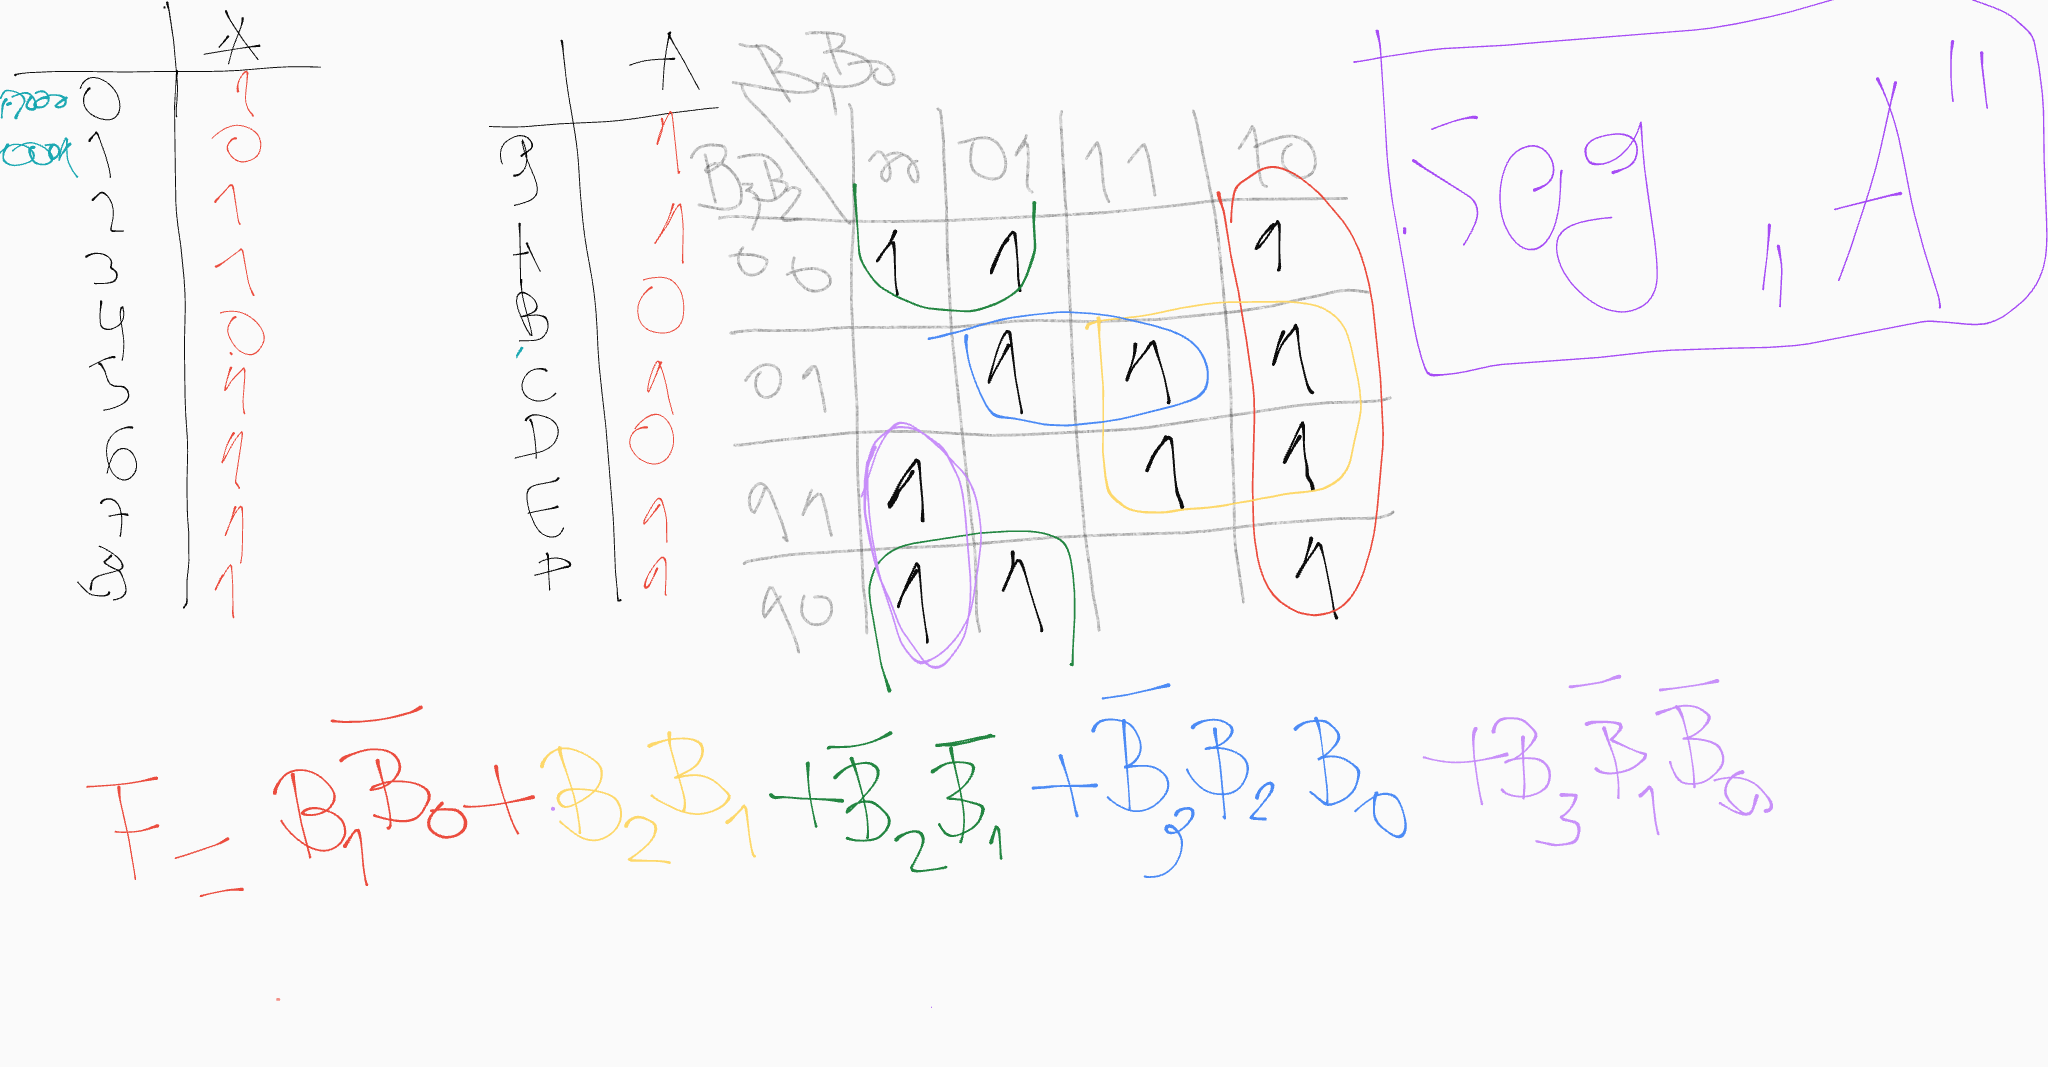 A A
0000 0 1
0001 1 0
2 1
3 1
4 0
5 1
6 1
7 1
8 1
9 1
A 1
B 0
C 1
D 0
E 1
F 1
B1B0
B3B2 00 01 11 10
00 1 1 1
01 1 1 1
11 1 1 1
10 1 1 1
Seg „A"
F = B1B̅0 + B2B1 + B̅2B̅1 + B̅3B2B0 + B3B̅1B̅0